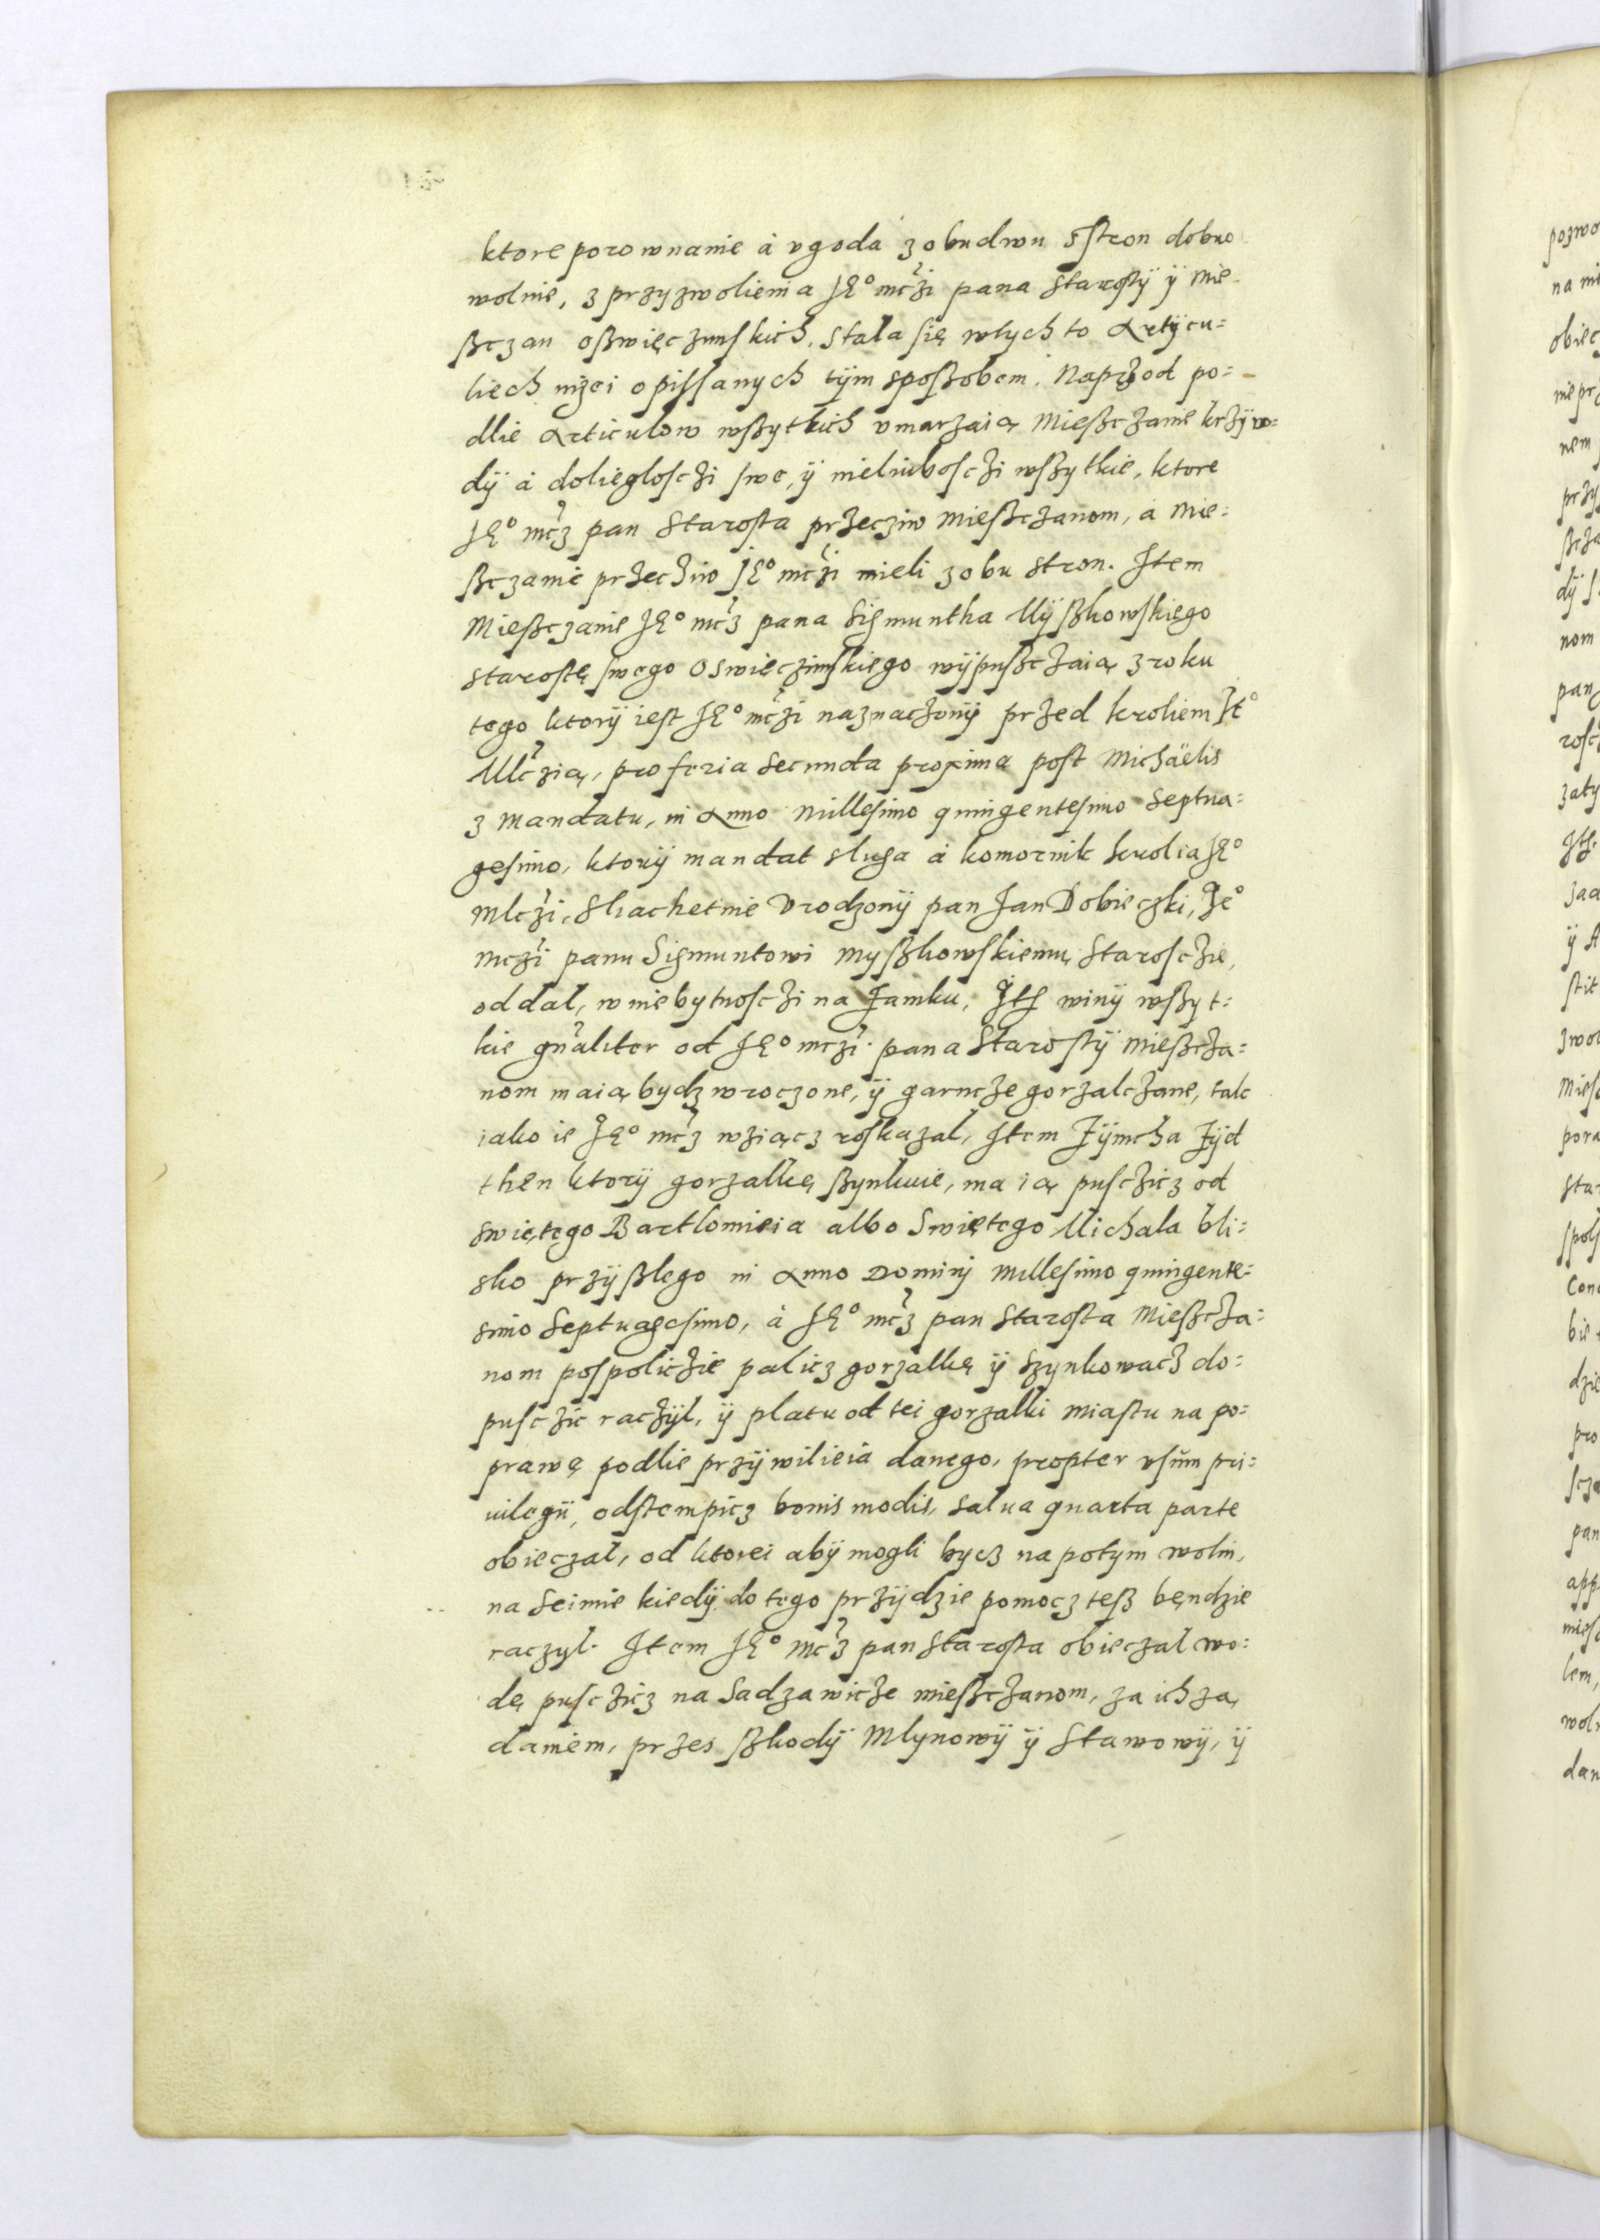 ktore porownanie á vgoda z obudwu sstron dobro
wolnie, z przyzwolienia JE° mc̃zi pana Starosty ÿ Mie-
ßczan oßwięczimskich, stala się wtych to Artÿcu=
liech nizei opissanych tÿm sposzobem. Naprzod po=
dlie Articulow wszytkich vmarzaią Mieszczanie krzÿw=
dÿ á dolieglosczi swe, ÿ nieliubosczi wszytkie, ktore
JE° mc̃z pan Starosta przecziw Mieszczanom, á Mie=
ßczanie przecziw JE° mc̃zi mieli z obu stron. Item
Mieszczanie JE° mc̃z pana Sigmuntha Mÿszkowskiego
starostę swego Oswieczimskiego wÿpuszczaią z roku
tego ktorÿ iest JE° mc̃zi naznaczonÿ przed kroliem Je°
Mlc̃zią, pro feria secunda proxima post Michäelis
z mandatu, in Anno Millesimo quingentesimo Septua=
gesimo, ktorÿ mandat sluga á komornik krolia JE°
Mlc̃zi, Sliachetnie Vrodzonÿ pan Jan Dobieczki, Je°
mc̃zi panu Sigmuntowi Myszkowskiemu Starosczie,
oddal, w niebytnosczi na Zamku, Jtẽ winÿ wszyt=
kie gñaliter od JE° mc̃zi pana Starostÿ Mieszcza=
nom maią bydz wroczone, ÿ garncze gorzalczane, tak
iako ie JE° mc̃z wziącz roskazal, Item Zÿmcha Zÿd
then ktorÿ gorzalkę szynkuie, ma ią pusczicz od
swiętego Bartlomieia albo Swiętego Michala bli=
sko przÿszlego in Anno Dominÿ Millesimo quingente=
simo Septuagesimo, á JE° mc̃z pan Starosta Mieszcza=
nom pospoliczie palicz gorzalkę ÿ szynkowacz do=
pusczic raczÿl, ÿ platu od tei gorzalki miastu na po=
prawę podlie przÿwilieia danego, propter vsum pri=
uilegii, odstempicz bonis modis, salua quarta parte
obieczal, od ktorei abÿ mogli bycz na potym wolni,
na Seimie kiedÿ do tego przÿdzie pomocz tesz będzie
raczyl. Item JE° mc̃z pan Starosta obieczal wo=
dę pusczicz na Sadzawicze mieszczanom, za ich zą
daniem, przes szkodÿ Mlynowÿ ÿ Stawowÿ, ÿ